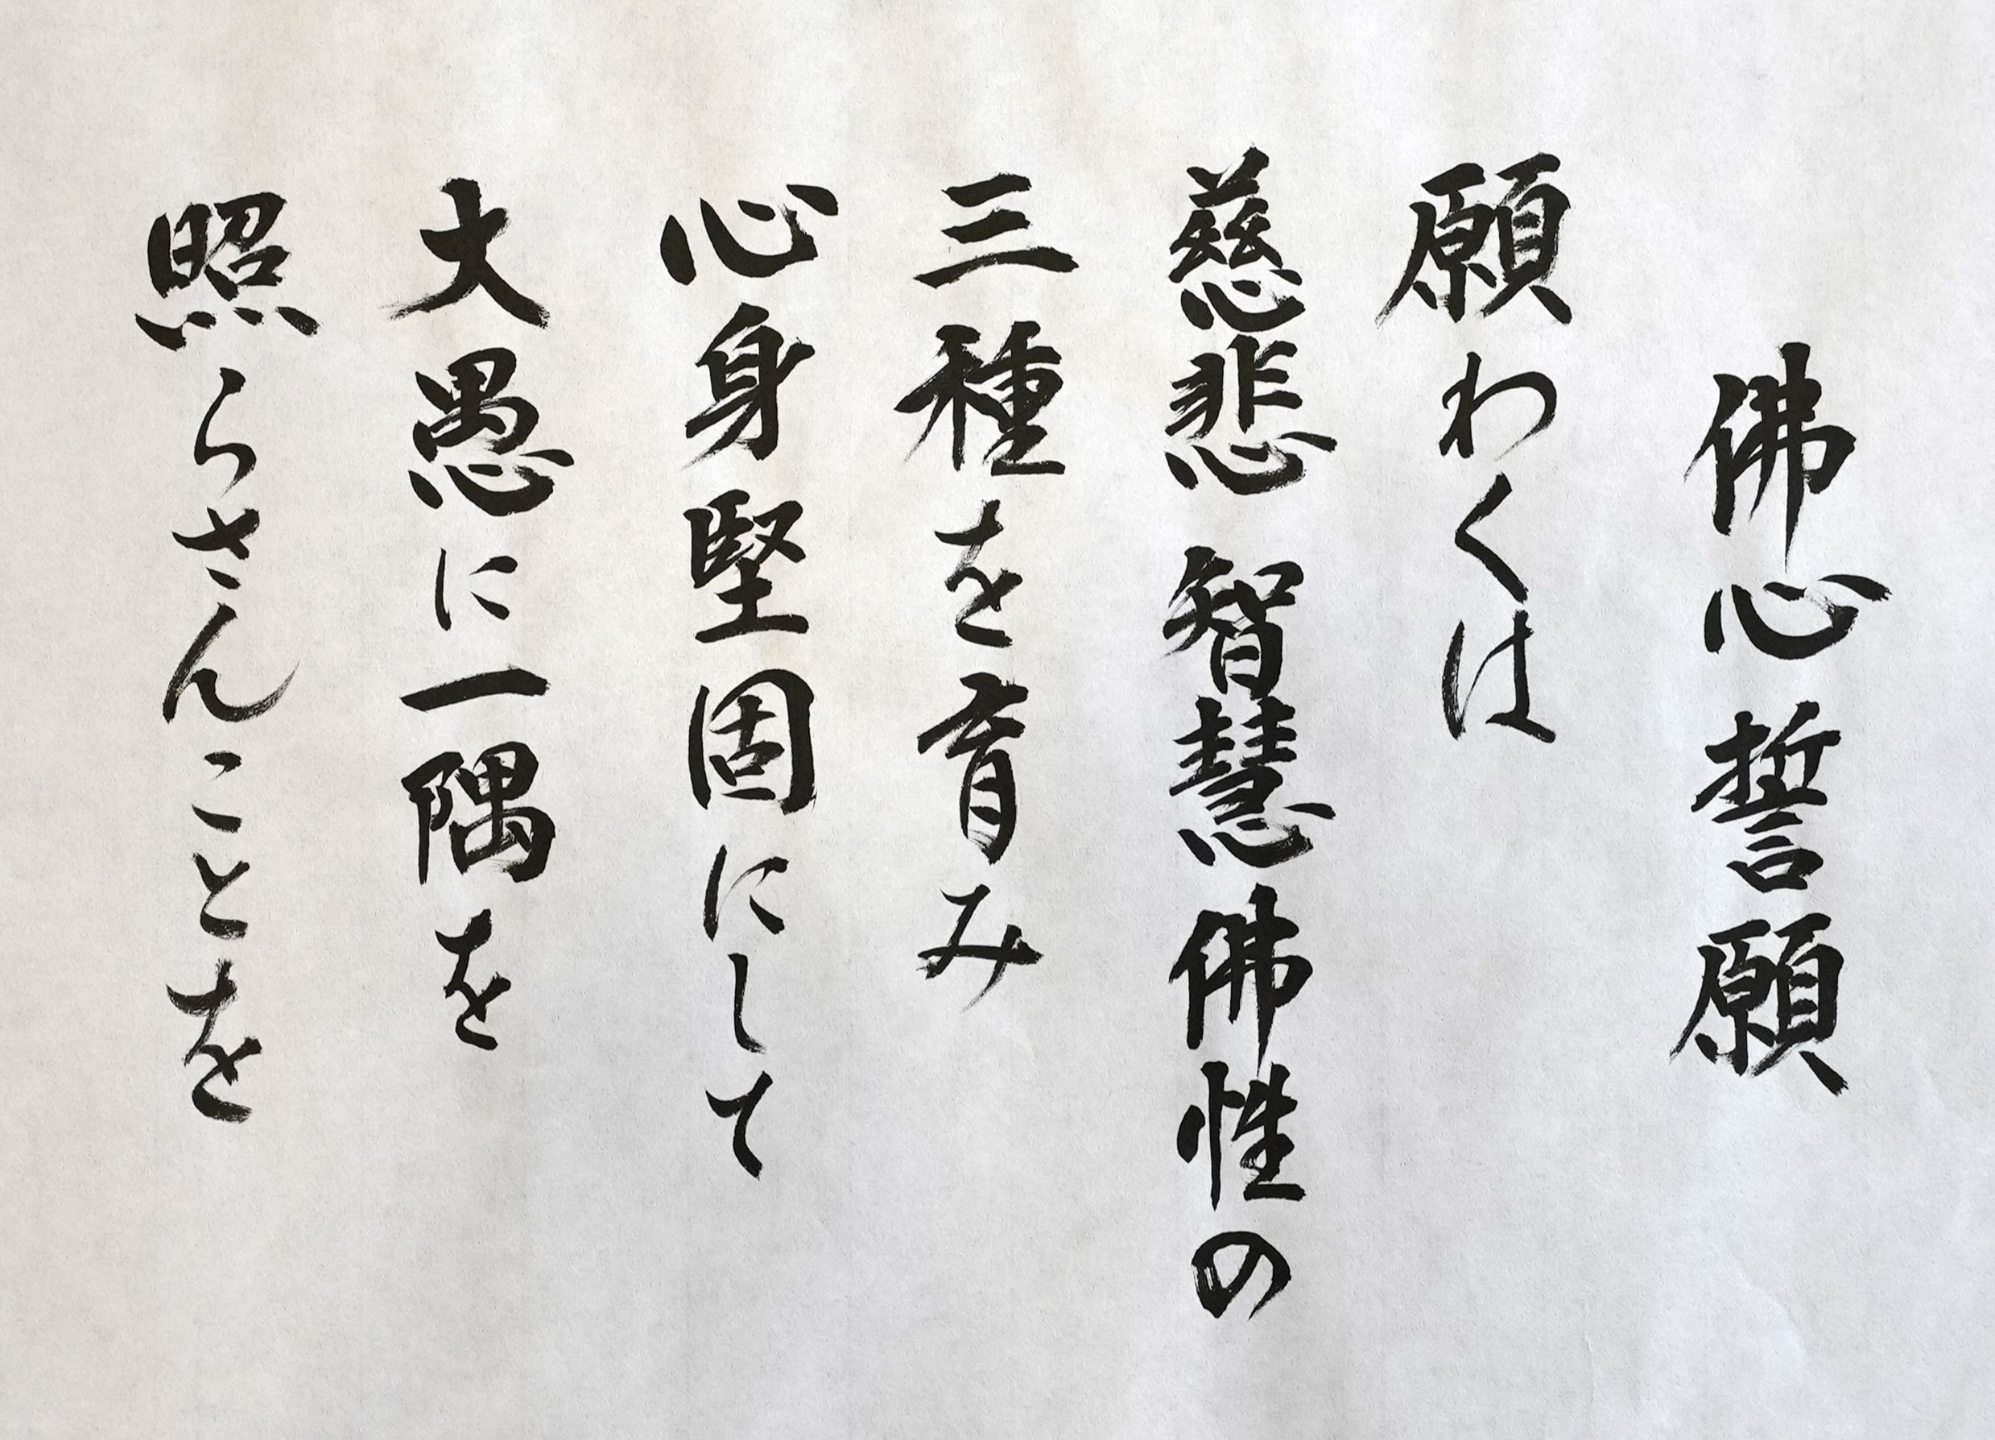 佛心誓願
願わくは
慈悲智慧佛性の
三種を育み
心身堅固にして
大愚に一隅を
照らさんことを